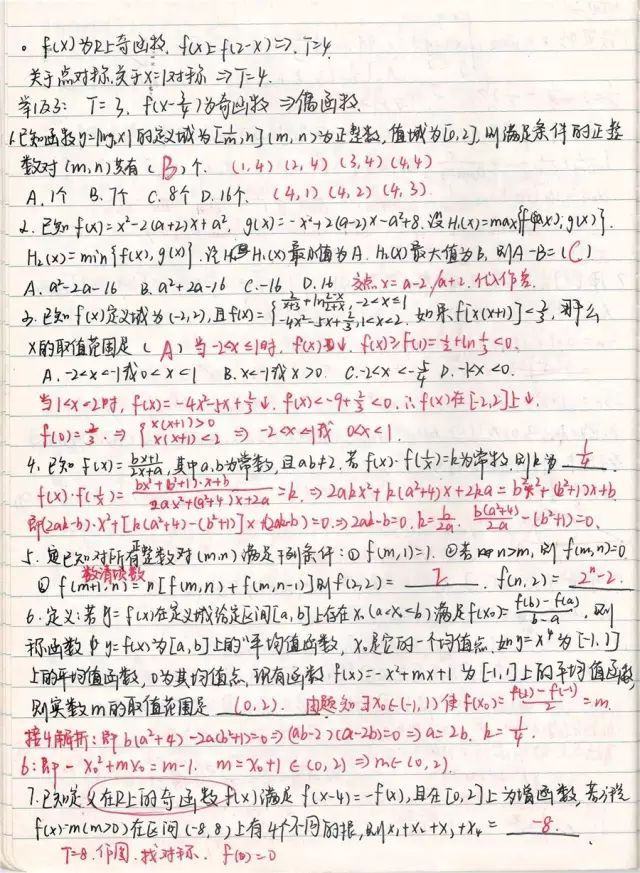 。f(x)为R上奇函数. f(x)=f(2-x)⇒T=4
关于点对称,关于x=1对称 ⇒T=4.
举I及3: T=3, f(x-3/4)为奇函数 ⇒偶函数.
1.已知函数y=|log₂x|的定义域为[1/m,n](m,n)为正整数,值域为[0,2],则满足条件的正整
数对(m,n)共有(B)个. (1,4)(2,4)(3,4)(4,4)
A.1个 B.7个 C.8个 D.16个. (4,1)(4,2)(4,3).
2.已知f(x)=x²-2(a+2)x+a², g(x)=-x²+2(a-2)x-a²+8.设H₁(x)=max{f(x),g(x)}.
H₂(x)=min{f(x),g(x)}.记H₁(x)最小值为A. H₂(x)最大值为B,则A-B=(C)
A. a²-2a-16 B. a²+2a-16 C.-16 D.16 交点x=a-2,/a+2.代入作差.
3.已知f(x)定义域为(-2,2),且f(x)={2/(x+3)+ln(2-x)/(2+x),-2<x≤1 -4x²-5x+2/3,1<x<2. 如果f[x(x+1)]<2/3,那么
x的取值范围是(A) 当-2<x≤1时, f(x)↓. f(x)≥f(1)=1/2+ln1/3<0.
A.-2<x<-1或0<x<1 B.x<-1或x>0. C.-2<x<-5/4 D.-1<x<0.
当1<x<2时, f(x)=-4x²-5x+2/3↓. f(x)<-9+2/3<0.∴f(x)在[-2,2]上↓.
f(0)=2/3.⇒{x(x+1)>0 x(x+1)<2 ⇒ -2<x<-1或 0<x<1.
4.已知f(x)=(bx+1)/(2x+a),其中a,b为常数,且ab≠2.若f(x)·f(1/x)=k为常数,则k为 1/4
f(x)·f(1/x)=(bx²+(b²+1)·x+b)/(2ax²+(a²+4)x+2a)=k.⇒2akx²+k(a²+4)x+2ka=bx²+(b²+1)x+b.
即(2ak-b)·x²+[k(a²+4)-(b²+1)]x+(2ak-b)=0.⇒2ak-b=0.k=b/2a. b(a²+4)/2a-(b²+1)=0.
5.已知对所有整数对(m,n)满足下列条件:①f(m,1)=1.②若n>m,则f(m,n)=0
数清项数
③f(m+1,n)=n[f(m,n)+f(m,n-1)]则f(2,2)= 2 . f(n,2)= 2ⁿ-2.
6.定义:若y=f(x)在定义域给定区间[a,b]上存在x₀(a<x₀<b)满足f(x₀)=(f(b)-f(a))/(b-a),则
称函数y=f(x)为[a,b]上的"平均值函数,x₀是它的一个均值点.如y=x⁴为[-1,1]
上的平均值函数,0为其均值点,现有函数f(x)=-x²+mx+1为[-1,1]上的平均值函数
则实数m的取值范围是 (0,2). 由题知∃x₀∈(-1,1)使f(x₀)=(f(1)-f(-1))/2=m.
接4解析:即b(a²+4)-2a(b²+1)=0⇒(ab-2)(a-2b)=0⇒a=2b. k=1/4.
6:即-x₀²+mx₀=m-1. m=x₀+1∈(0,2)⇒m∈(0,2).
7.已知定义在R上的奇函数f(x)满足f(x-4)=-f(x),且在[0,2]上为增函数,若方程
f(x)=m(m>0)在区间(-8,8)上有4个不同的根,则x₁+x₂+x₃+x₄= -8.
T=8.作图.找对称. f(0)=0